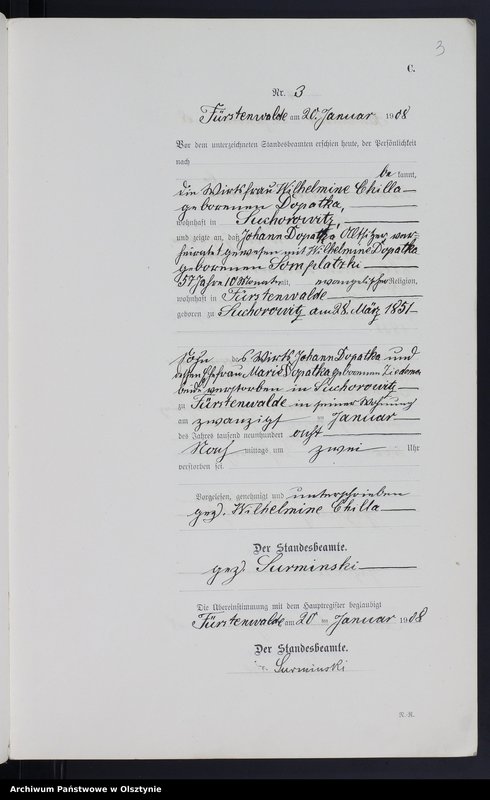 3
C.
Nr. 3
Fürstenwalde am 20. Januar 1908
Vor dem unterzeichneten Standesbeamten erschien heute, der Persönlichkeit
nach
be kannt,
die Wirtsfrau Wilhelmine Chilla
geborenen Dopatka,
wohnhaft in Suchorowitz,
und zeigte an, daß Johann Dopatka Altsitzer ver-
heiratet gewesen mit Wilhelmine Dopatka
geborenen Sompilatzki
57 Jahre 10 Monate alt, evangelischer Religion,
wohnhaft in Fürstenwalde
geboren zu Suchorowitz am 28. März 1851
Sohn des Wirts Johann Dopatka und
dessen Ehefrau Marie Dopatka geborenen
beide verstorben in Suchorowitz
zu Fürstenwalde in seiner Wohnung
am zwanzigt im Januar
des Jahres tausend neunhundert acht
Nach mittags um zwei Uhr
verstorben sei.
Vorgelesen, genehmigt und unterschrieben
gez. Wilhelmine Chilla
Der Standesbeamte.
gez. Surminski
Die Übereinstimmung mit dem Hauptregister beglaubigt
Fürstenwalde am 20 im Januar 1908
Der Standesbeamte.
Surminski
R.-R.
Archiwum Państwowe w Olsztynie